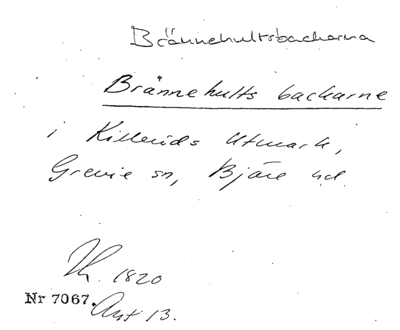 Brännehultsbackarna
Brännehults backarne
i Killeröds Utmark,
Grevie sn, Bjäre hd.
1820
Nr 7067. Ant 13.